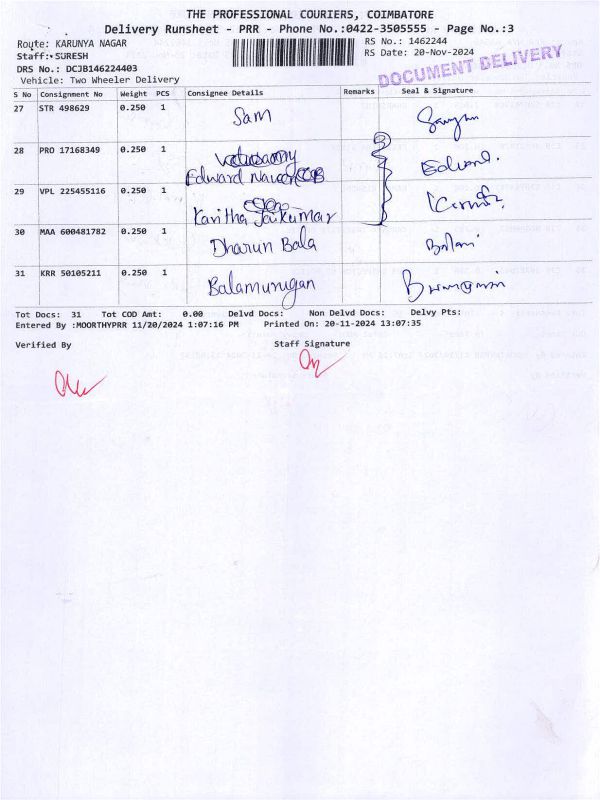 THE PROFESSIONAL COURIERS, COIMBATORE
Delivery Runsheet - PRR - Phone No.:0422-3505555 - Page No.:3
Route: KARUNYA NAGAR
RS No.: 1462244
Staff: SURESH
RS Date: 20-Nov-2024
DRS No.: DCJB146224403
DOCUMENT DELIVERY
Vehicle: Two Wheeler Delivery
S No Consignment No Weight PCS Consignee Details Remarks Seal & Signature
27 STR 498629 0.250 1 Sam
28 PRO 17168349 0.250 1
Edward
Edward.
29 VPL 225455116 0.250 1
Kavitha Jaikumar
30 MAA 600481782 0.250 1 Dharun Bala
31 KRR 50105211 0.250 1 Balamurugan
Tot Docs: 31 Tot COD Amt: 0.00 Delvd Docs: Non Delvd Docs: Delvy Pts:
Entered By :MOORTHYPRR 11/20/2024 1:07:16 PM Printed On: 20-11-2024 13:07:35
Verified By Staff Signature